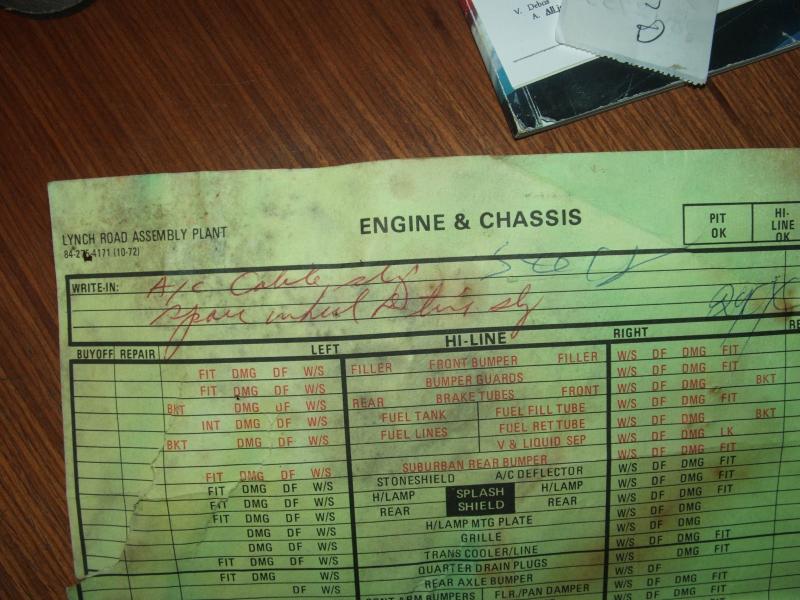 V. Debor
A. All j
ENGINE & CHASSIS
PIT OK
HI-LINE OK
LYNCH ROAD ASSEMBLY PLANT
84-275-4171 (10-72)
WRITE-IN: A/c Cable
spare wheel & tire
HI-LINE
BUYOFF REPAIR LEFT RIGHT RE
FIT DMG DF W/S FILLER FRONT BUMPER FILLER W/S DF DMG FIT
FIT DMG DF W/S BUMPER GUARDS W/S DF DMG FIT BKT
BKT DMG DF W/S REAR BRAKE TUBES FRONT W/S DF DMG FIT
INT DMG DF W/S FUEL TANK FUEL FILL TUBE W/S DF DMG BKT
BKT DMG DF W/S FUEL LINES FUEL RET TUBE W/S DF DMG LK
V & LIQUID SEP W/S DF DMG FIT
FIT DMG DF W/S SUBURBAN REAR BUMPER W/S DF DMG FIT
FIT DMG DF W/S STONESHIELD A/C DEFLECTOR W/S DF DMG FIT
FIT DMG DF W/S H/LAMP SPLASH SHIELD H/LAMP W/S DF DMG FIT
FIT DMG DF W/S REAR REAR W/S DF DMG
DMG DF W/S H/LAMP MTG PLATE W/S DF DMG
DMG DF W/S GRILLE W/S DF DMG FIT
FIT DMG DF W/S TRANS COOLER/LINE W/S DMG FIT
FIT DMG W/S QUARTER DRAIN PLUGS W/S DF
DF W/S REAR AXLE BUMPER W/S DF DMG FIT
BUMPERS FLR./PAN DAMPER W/S DF DMG FIT